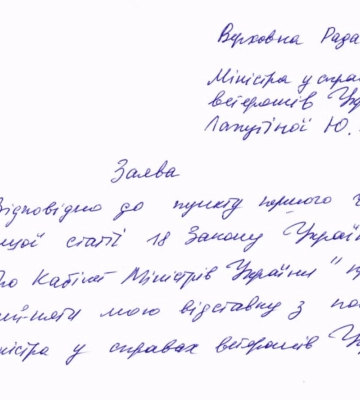 Верховна Рада
Міністра у справ
ветеранів Укр
Лапутіної Ю.
Заява
Відповідно до пункту першого ч
шої статті 18 Закону Україн
ро Кабінет Міністрів України" п
ийняти мою відставку з по
ністра у справах ветеранів Ук